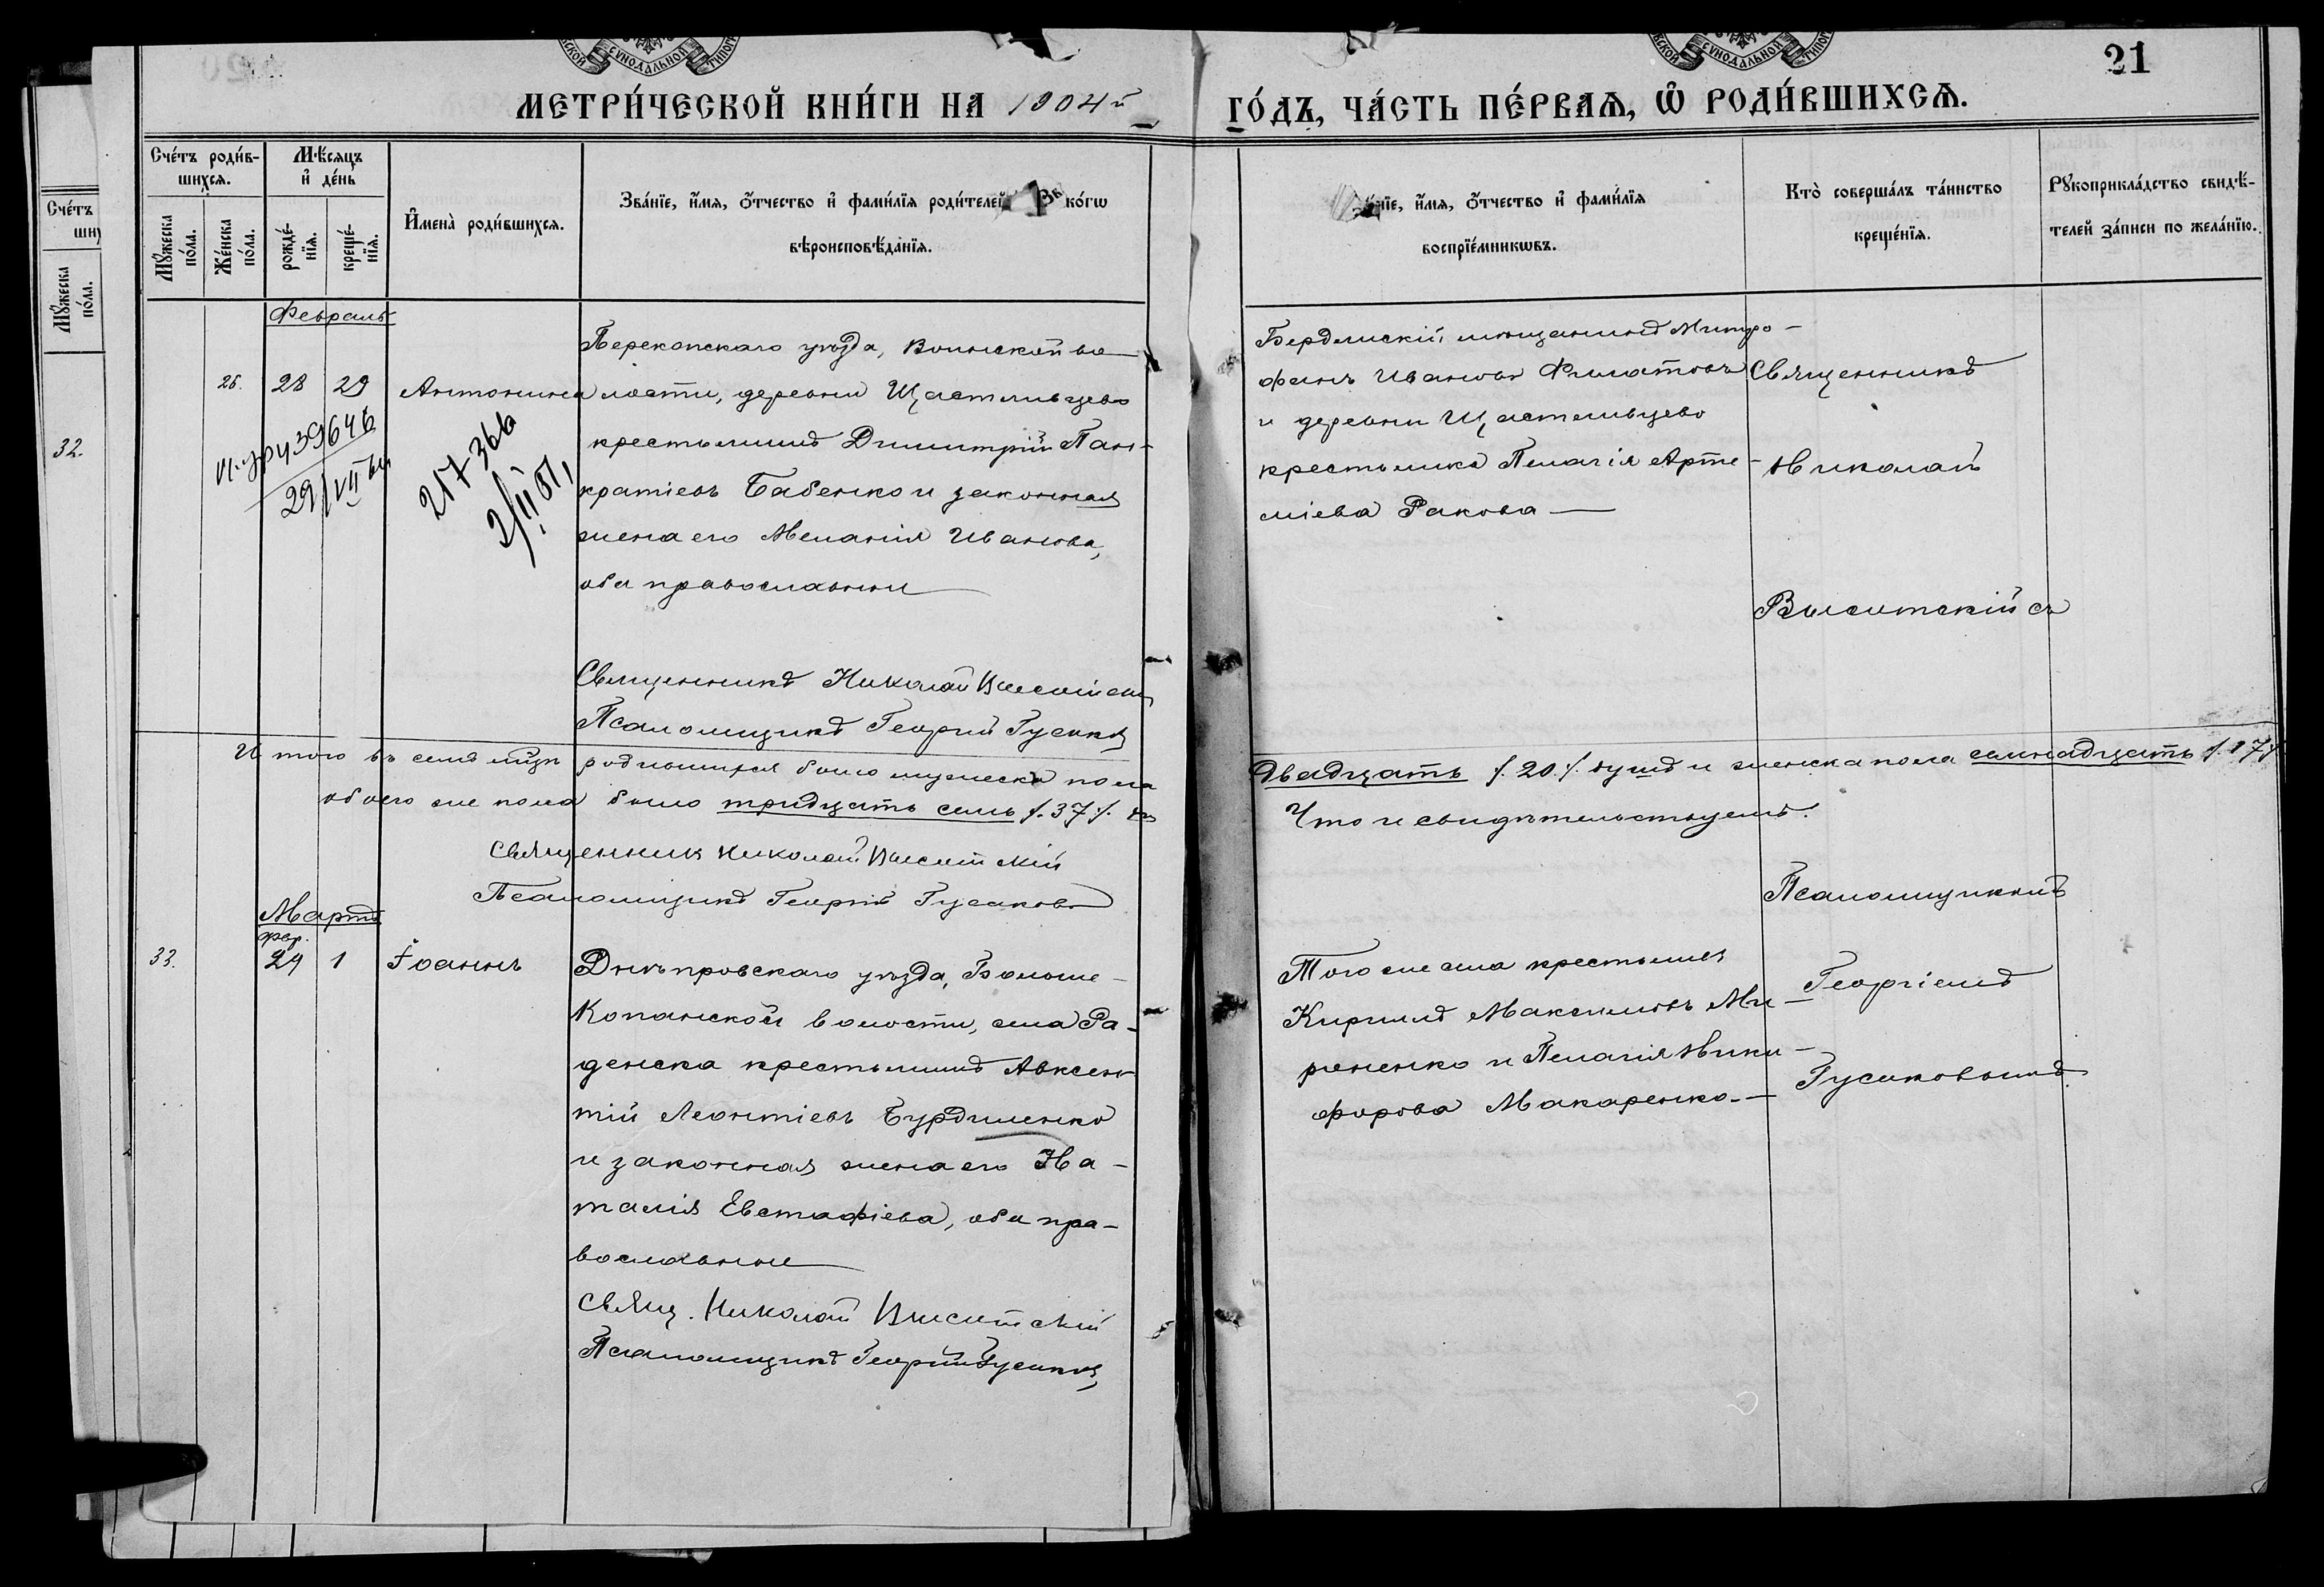 21
МЕТРИ́ЧЕСКОЙ КНИ́ГИ НА 1904й
ГО́ДЪ, ЧА́СТЬ ПЕ́РВАѦ, Ѡ РОДИ́ВШИХСѦ.
Сче́тъ роди́в-
шихсѧ.
Мѣ́сѧцъ
и҆ де́нь
Мꙋ́жеска
по́ла.
Же́нска
по́ла.
рожде́-
нїѧ.
креще́-
нїѧ.
И҆мена̀ роди́вшихсѧ.
Зва́нїе, и҆́мѧ, ѻ҆́тчество и҆ фами́лїѧ роди́телей
ко́гѡ
вѣроисповѣ́данїѧ.
нїе, и҆́мѧ, ѻ҆́тчество и҆ фами́лїѧ
воспрїе́мникѡвъ.
Кто̀ соверша́лъ та́инство
креще́нїѧ.
Рꙋкоприкла́дство свидѣ́-
телей за́писи по жела́нїю.
Сче́тъ
Мꙋ́жеска
по́ла.
32.
Февраль
28 29 Антонина
217366
Перекопскаго уѣзда, Воинской во-
лости, деревни Щастливцево
крестьянинъ Димитрій Пан-
кратіевъ Бабенко и законная
жена его Меланія Иванова,
оба православные
Священникъ Николай Высотскій
Псаломщикъ Георгій Гусаковъ
Бердянскій мѣщанинъ Митро-
фанъ Ивановъ Филатовъ
и деревни Щастливцево
крестьянка Пелагія Арте-
міева Ракова
Священникъ
Николай
Высотскій съ
Итого въ семъ мѣсяцѣ родившихся было мужеска пола
двадцать /.20./. душъ и женска пола семнадцать /.17./.
обоего же пола было тридцать семь /.37./.
Что и свидѣтельствуемъ.
Священникъ Николай Высотскій
Псаломщикъ Георгій Гусаковъ
Мартъ
фев.
33. 29 1 Іоаннъ
Днѣпровскаго уѣзда, Больше-
Копанской волости, села Ра-
денска крестьянинъ Авксен-
тій Леонтіевъ Бурдименко
и законная жена его На-
талія Евстафіева, оба пра-
вославные
Свящ. Николай Высотскій
Псаломщикъ Георгій Гусаковъ
Того же села крестьяне
Кириллъ Максимовъ Ми-
роненко и Пелагія Ники-
форова Макаренко.
Псаломщикомъ
Георгіемъ
Гусаковымъ